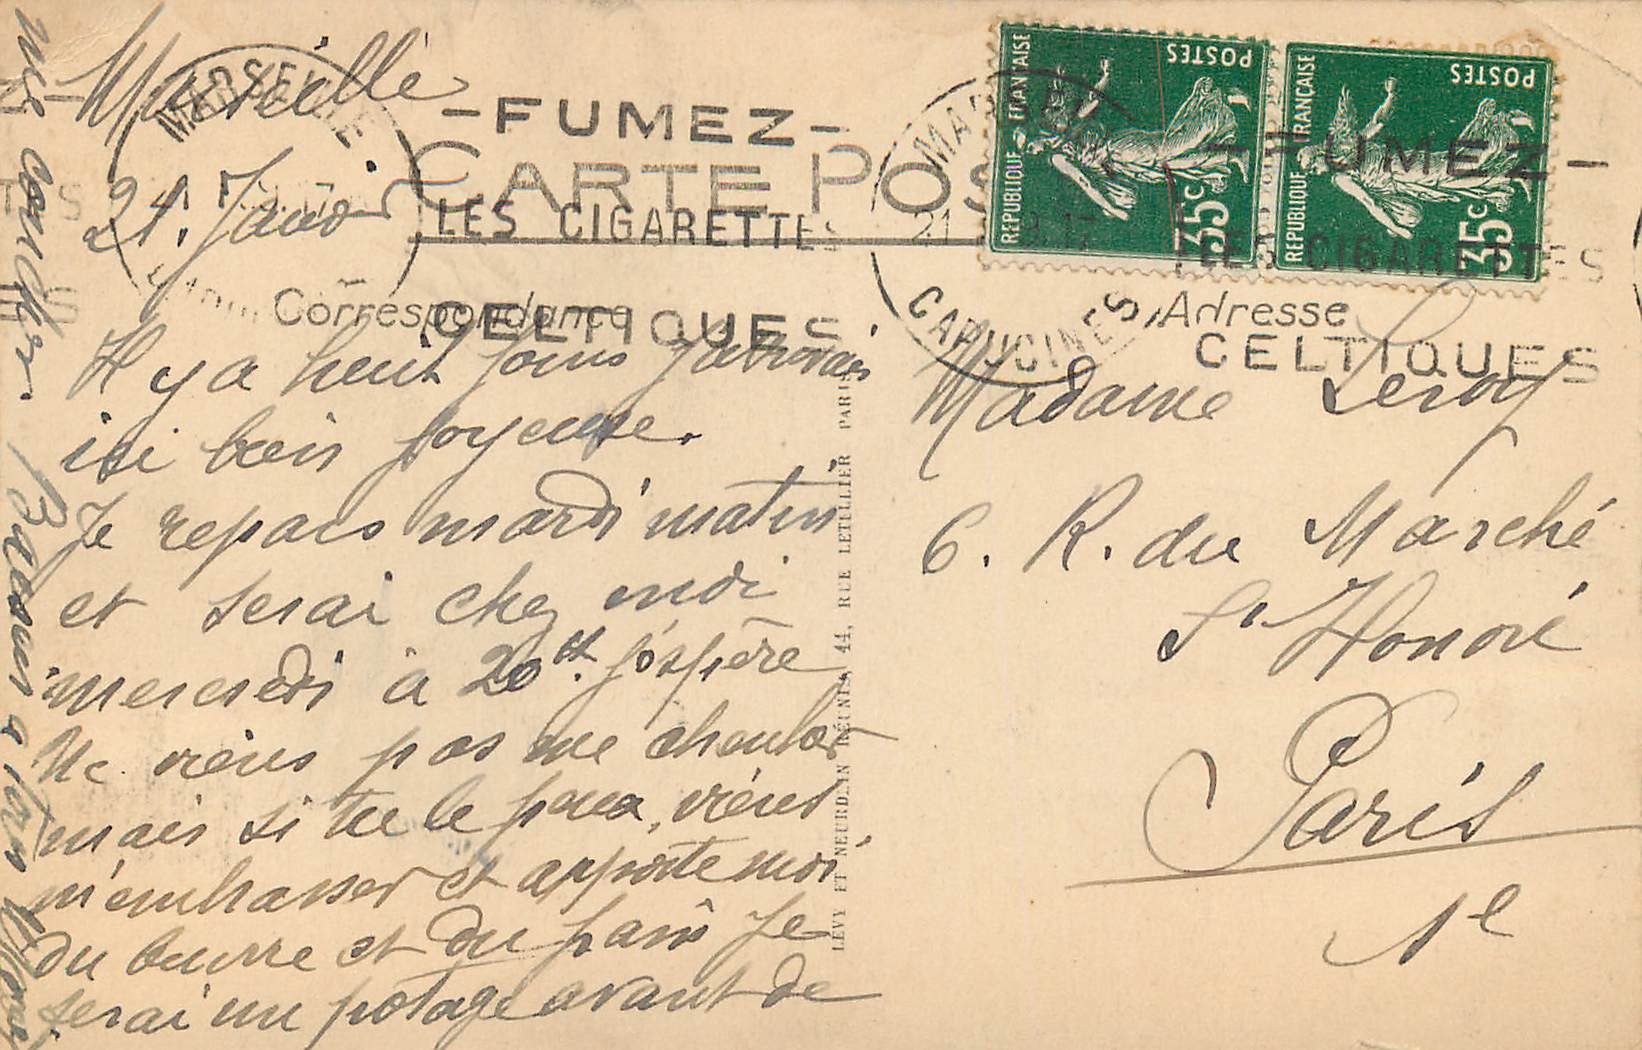 Marseille
21. Janv
MARSEILLE
CAPUCINES
- FUMEZ -
LES CIGARETTES
CELTIQUES
- FUMEZ -
LES CIGARETTES
CELTIQUES
CARTE POS
Correspondance
Adresse
REPUBLIQUE FRANÇAISE
POSTES
35c
REPUBLIQUE FRANÇAISE
POSTES
35c
Il y a huit jours j'arrivais
ici bien joyeuse.
Je repars mardi matin
et serai chez moi
mercredi à 20H. j'espère
Ne viens pas me chercher
mais si tu le peux, viens
m'embrasser et apporte moi
du beurre et du pain Je
serai un potage avant de
me coucher. Baisers à ton
Madame Leroy
6. R. du Marché
St Honoré
Paris
1e
LEVY ET NEURDEIN REUNIS, 44, RUE LETELLIER PARIS